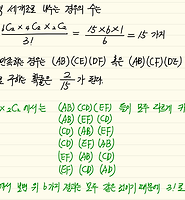 세개조로 나누는 경우의 수는
₆C₂ × ₄C₂ × ₂C₂ / 3! = 15×6×1 / 6 = 15 가지
만족하는 경우는 (AB)(CE)(DF) 혹은 (AB)(CF)(DE)
구하는 확률은 2/15 가 된다.
×₂C₂ 에서는 (AB)(CD)(EF) 등이 모두 다르게
(AB)(EF)(CD)
(CD)(AB)(EF)
(CD)(EF)(AB)
(EF)(AB)(CD)
(EF)(CD)(AB)
보면 위 6가지 경우는 모두 같은 것이기 때문에 3!로